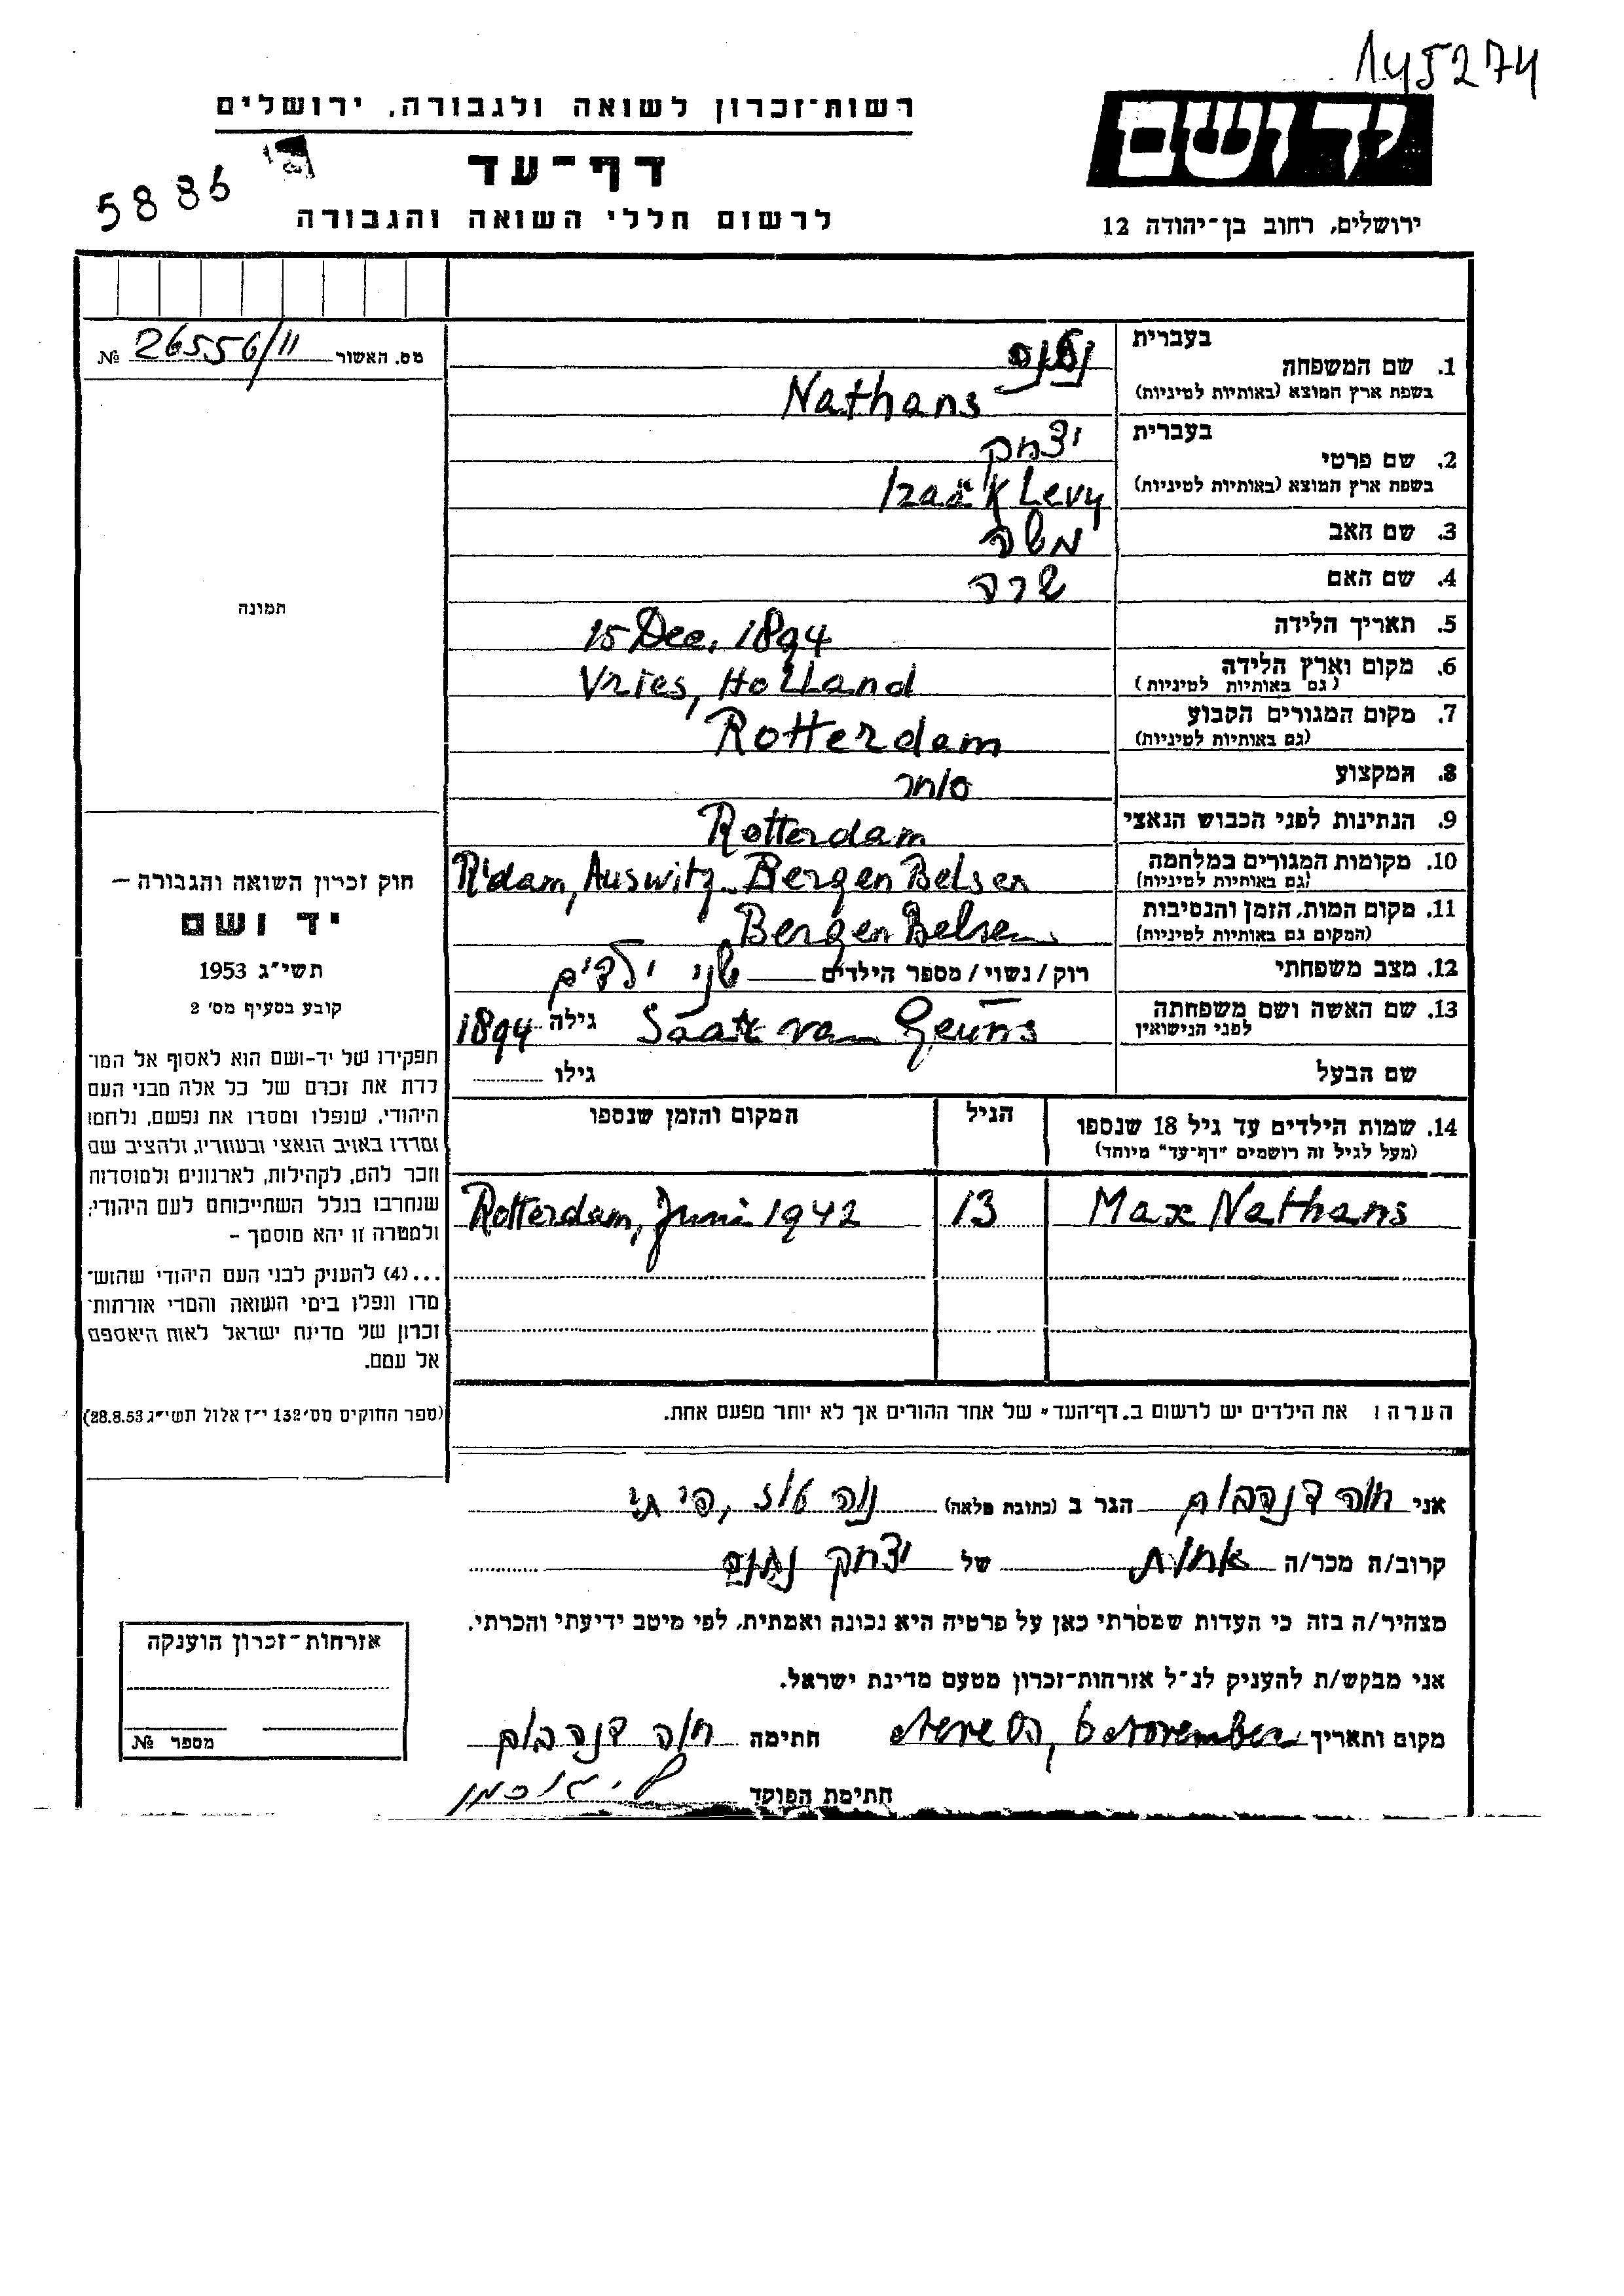 145274
יד ושם
ירושלים, רחוב בן־יהודה 12
רשות־זכרון לשואה ולגבורה, ירושלים
דף־עד
לרשום חללי השואה והגבורה
5886
מס. האשור № 26556/11
1. שם המשפחה בעברית נתנס
בשפת ארץ המוצא (באותיות לטיניות) Nathans
2. שם פרטי בעברית יצחק
בשפת ארץ המוצא (באותיות לטיניות) Izaäk Levy
3. שם האב משה
4. שם האם שרה
5. תאריך הלידה 15 Dec. 1894
6. מקום וארץ הלידה (גם באותיות לטיניות) Vries, Holland
7. מקום המגורים הקבוע (גם באותיות לטיניות) Rotterdam
8. המקצוע סוחר
9. הנתינות לפני הכבוש הנאצי Rotterdam
10. מקומות המגורים במלחמה (גם באותיות לטיניות) R'dam, Auswitz Bergen Belsen
11. מקום המות, הזמן והנסיבות (המקום גם באותיות לטיניות) Bergen Belsen
12. מצב משפחתי רוק / נשוי / מספר הילדים שני ילדים
13. שם האשה ושם משפחתה לפני הנישואין van Geuns גילה 1894
שם הבעל גילו
14. שמות הילדים עד גיל 18 שנספו הגיל המקום והזמן שנספו
(מעל לגיל זה רושמים "דף־עד" מיוחד)
Max Nathans 13 Rotterdam, Juni 1942
הערה: את הילדים יש לרשום ב"דף־העד" של אחד ההורים אך לא יותר מפעם אחת.
תמונה
חוק זכרון השואה והגבורה –
יד ושם
תשי"ג 1953
קובע בסעיף מס' 2
תפקידו של יד-ושם הוא לאסוף אל המו־
לדת את זכרם של כל אלה מבני העם
היהודי, שנפלו ומסרו את נפשם, נלחמו
ומרדו באויב הנאצי ובעוזריו, ולהציב שם
וזכר להם, לקהילות, לארגונים ולמוסדות
שנחרבו בגלל השתייכותם לעם היהודי;
ולמטרה זו יהא מוסמך –
...(4) להעניק לבני העם היהודי שהוש־
מדו ונפלו בימי השואה והמרי אזרחות־
זכרון של מדינת ישראל לאות היאספם
אל עמם.
(ספר החוקים מס' 132 י"ז אלול תשי"ג 28.8.53)
אני חוה דנהבום הגר ב (כתובת מלאה)
קרוב/ה מכר/ה אחות של יצחק נתנס
מצהיר/ה בזה כי העדות שמסרתי כאן על פרטיה היא נכונה ואמתית, לפי מיטב ידיעתי והכרתי.
אני מבקש/ת להעניק לנ"ל אזרחות־זכרון מטעם מדינת ישראל.
מקום ותאריך 6 November חתימה חוה דנהבום
חתימת הפוקד
אזרחות־זכרון הוענקה
מספר №